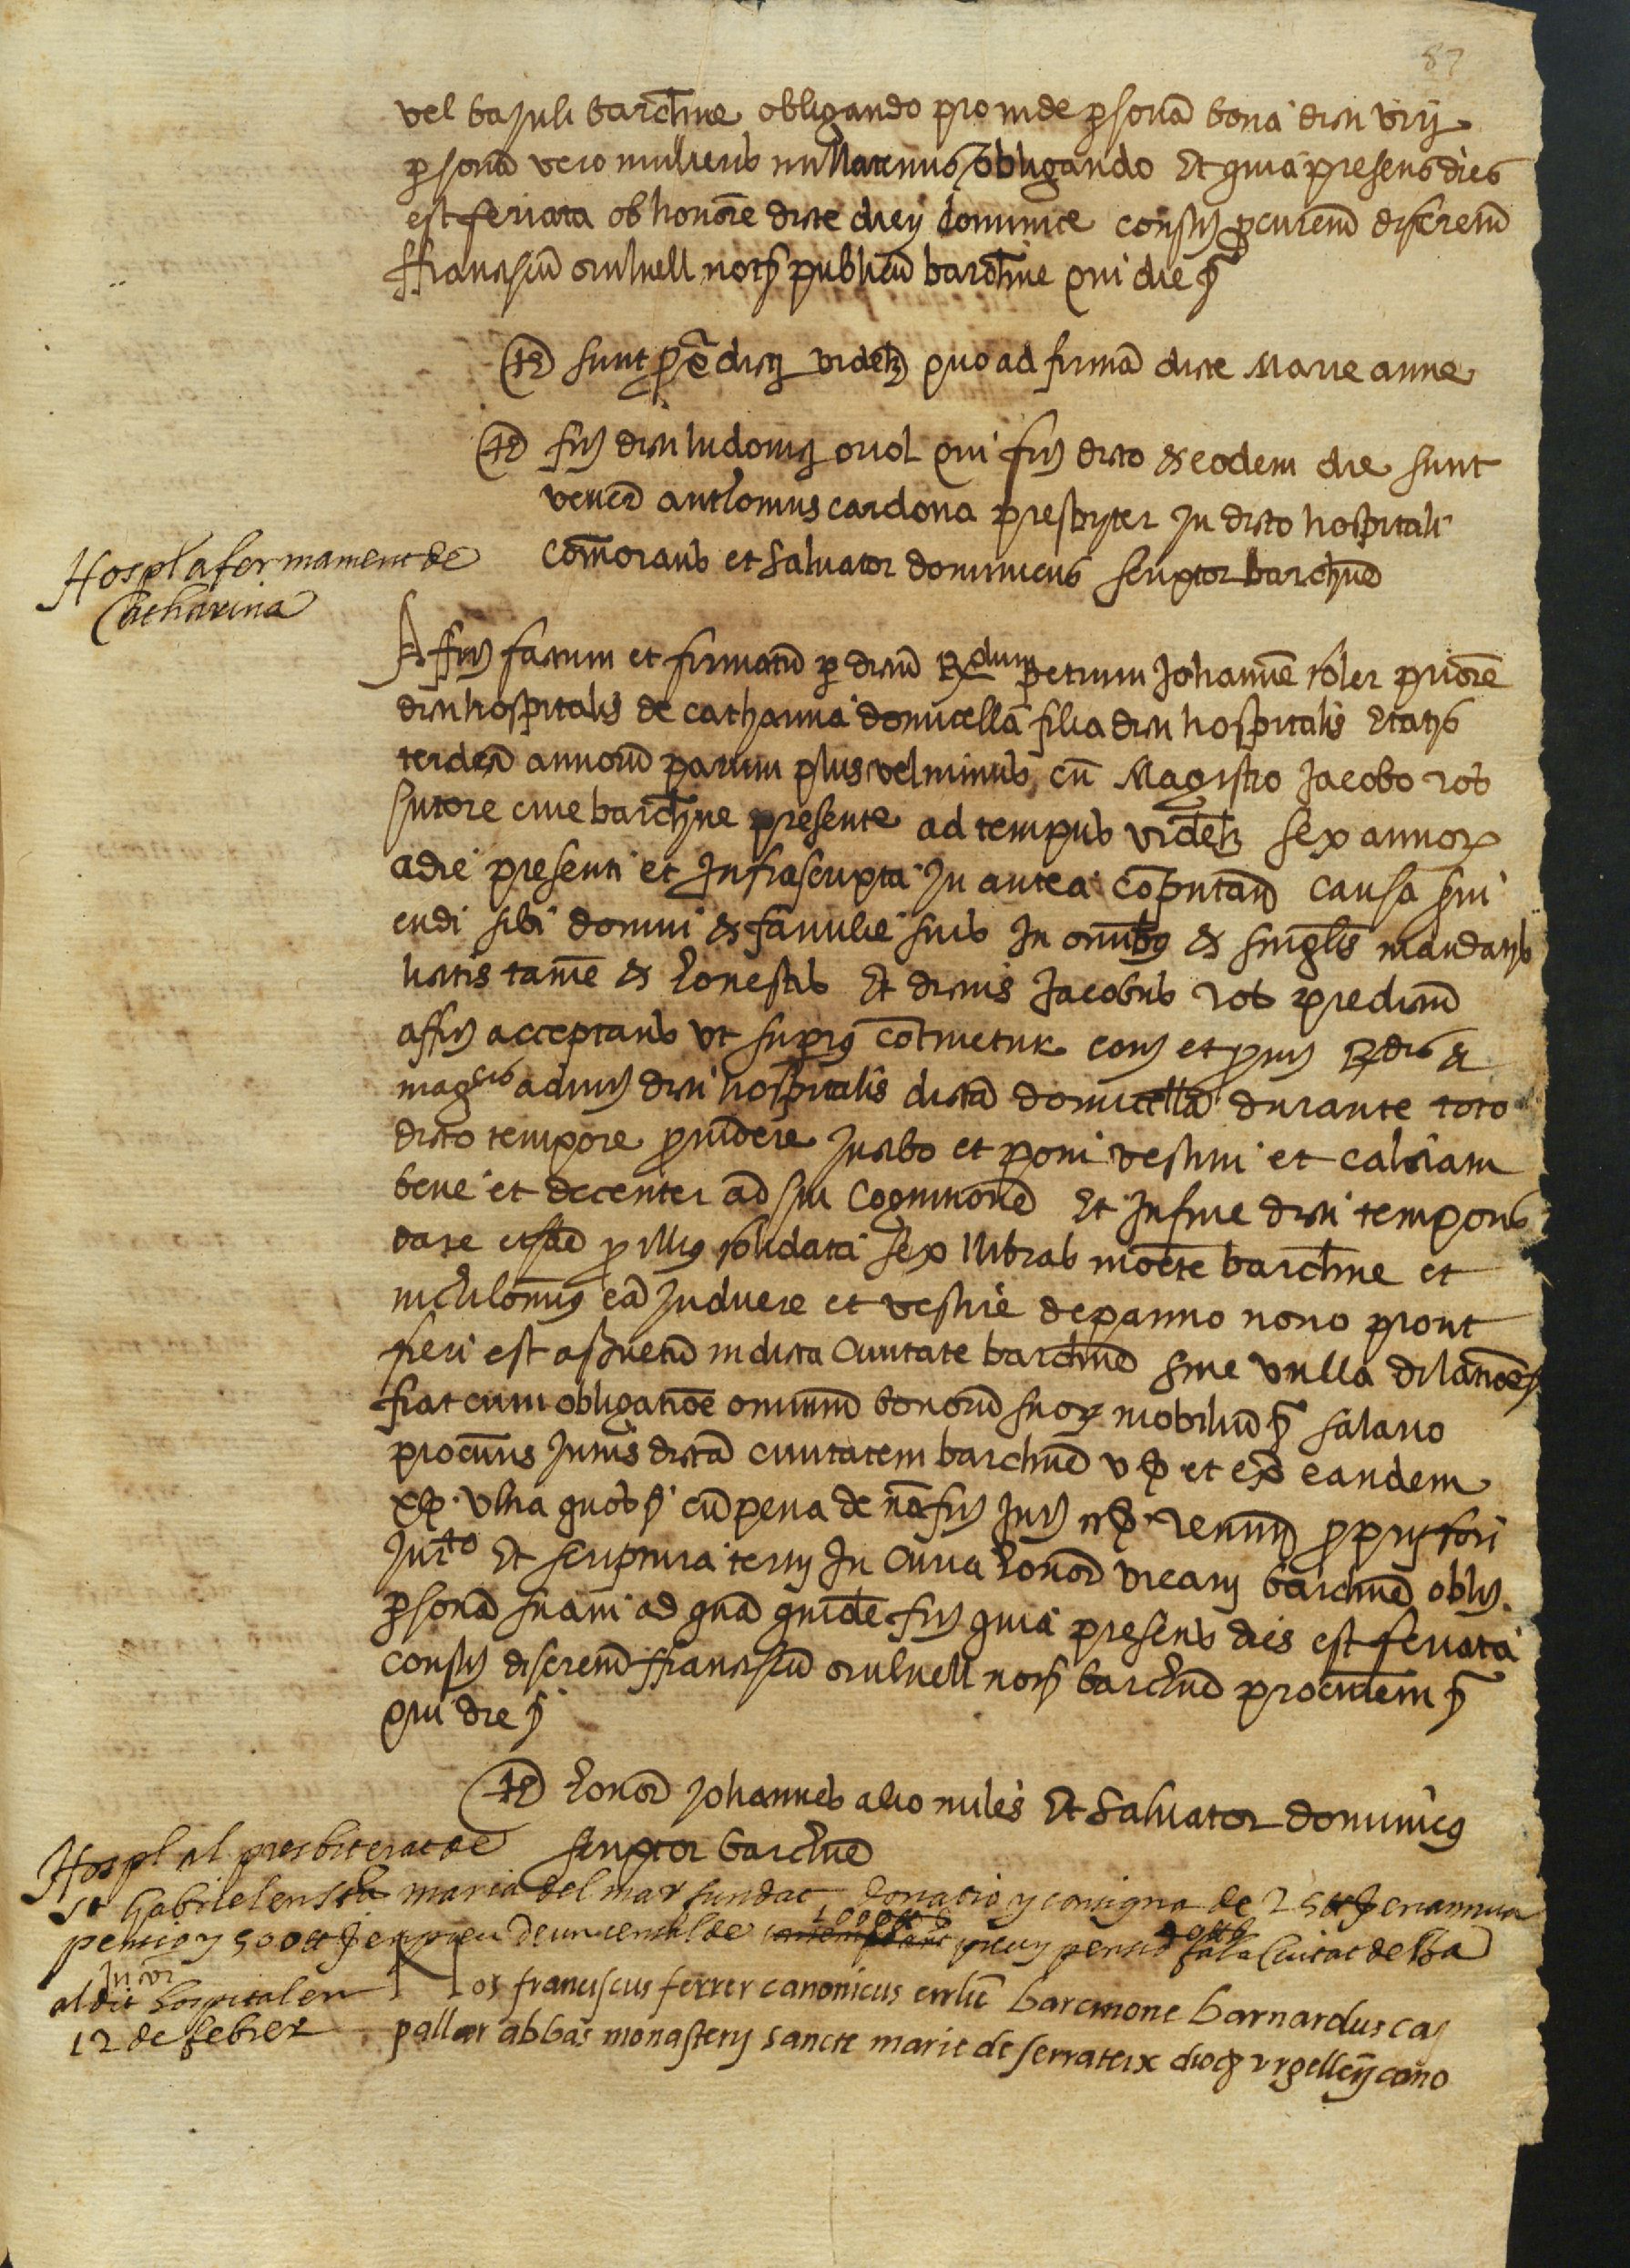 87
vel bajuli barchne obligando proinde psonã bona dicti viri
psonã vero mulieris nullatenus obligando Et quia presens dies
est feriata ob honorẽ dicte diei dominice constij pcurem̃ discretũ
ffranciscũ orulvell notm publicũ barchne qui die
Ts sunt predicti videlz quo ad firmã dicte Marie anne
Ts firm dicti ludovici oriol qui firm dicto & eodem die sunt
venerã anthonius cardona presbyter In dicto hospitali
Com̃orans et Salvator dominicus scriptor barchne
Hospl afermament de
Catharina
Affirm factum et firmatũ p dictũ Rdum petrum Johannẽ soler priorẽ
dicti hospitalis de catharina domicella filia dicti hospitalis Etatis
terdecĩ annorũ parum plus vel minus, cũ Magistro Jacobo ros
sutore cive barchne presente ad tempus videlz sex annor
a die presenti et Infrascripta In antea cõputand causa servi
endi sibi domui & familie suis In omibus & singlis mandatis
licitis tamẽ & honestis Et dictus Jacobus ros predictũ
affirm acceptans ut superius continetur conv et promit Rdis &
magcis admis dicti hospitalis dictã domicellã durante toto
dicto tempore providere In cibo et potu vestitu et calciatu
bene et decenter ad sui Cognitionẽ Et In fine dicti temporis
dare eidẽ pro illius solidata sex llibras monete barchne et
nichilominus eã Induere et vestire de panno novo prout
fieri est assuetũ in dicta Civitate barchne sine vulla dilatiõe
fiat cum obligatiõe omnium bonorũ suor mobiliũ salario
procuris Intus dictã civitatem barchne v et extã eandem
x. Ultra quos cũ pena de nõ firm Juris renunt proprii fori
Jurto Et scriptura tertij In Curia honorã vicarij barchne oblig.
psonã suam ad quã quidẽ firm quia presens dies est feriata
constij discretũ ffranciscũ orulvell notm barchne procurem
qui die
Ts honorã Johannes alio miles Et Salvator dominicus
scriptor barchne
Hospl al presbiterat de
St Gabriel en Sta maria del mar fundat donatio y consigna de 25 en annua
pencio y 500 en preu de un censal de 1000 preu y pensio fa la Ciutat de Ba
al dit hospital en
12 de febrer
Nos franciscus ferrer canonicus barcinone barnardus cas
pallar abbas monasterij sancte marie de serrateix dioc urgelleñ cano